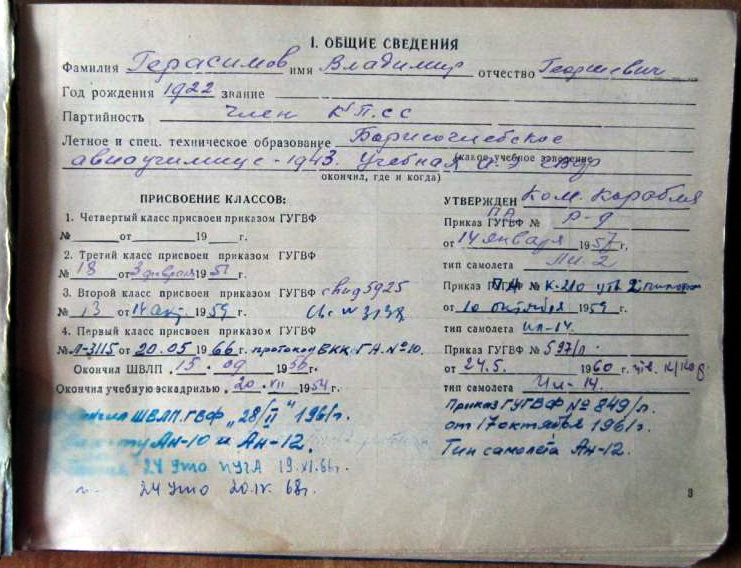 I. ОБЩИЕ СВЕДЕНИЯ
Фамилия Герасимов имя Владимир отчество Георгиевич
Год рождения 1922 звание
Партийность член КПСС
Летное и спец. техническое образование Борисоглебское
авиаучилище - 1943. Учебная
(какое учебное заведение
окончил, где и когда)
ПРИСВОЕНИЕ КЛАССОВ:
1. Четвертый класс присвоен приказом ГУГВФ
№ от 19 г.
2. Третий класс присвоен приказом ГУГВФ
№ 18 от 3 февраля 1951 г.
3. Второй класс присвоен приказом ГУГВФ свид 5925
№ 13 от 14 1959 г. Св. № 3138
4. Первый класс присвоен приказом ГУГВФ
№ Л-3115 от 20.05 1966 г. протокол ВКК ГА. № 10.
Окончил ШВЛП 15. 09 1956 г.
Окончил учебную эскадрилью 20. XII 1954 г.
ШВЛП. ГВФ „28/II" 1961г.
Ан-10 и Ан-12.
24 УТО 19.XI.66г.
24 УТО 20.IV. 68г.
УТВЕРЖДЕН Ком. Корабля
Приказ ГУГВФ № ПД Р-9
от 14 января 1957 г.
тип самолета Ли-2
Приказ ГУГВФ № К-210 утв 2 пилотом
от 10 октября 1959 г.
тип самолета Ил-14.
Приказ ГУГВФ № 597/л
от 24.5 1960 г.
тип самолета Ил-14.
Приказ ГУГВФ № 849/л.
от 17 октября 1961г.
Тип самолета Ан-12.